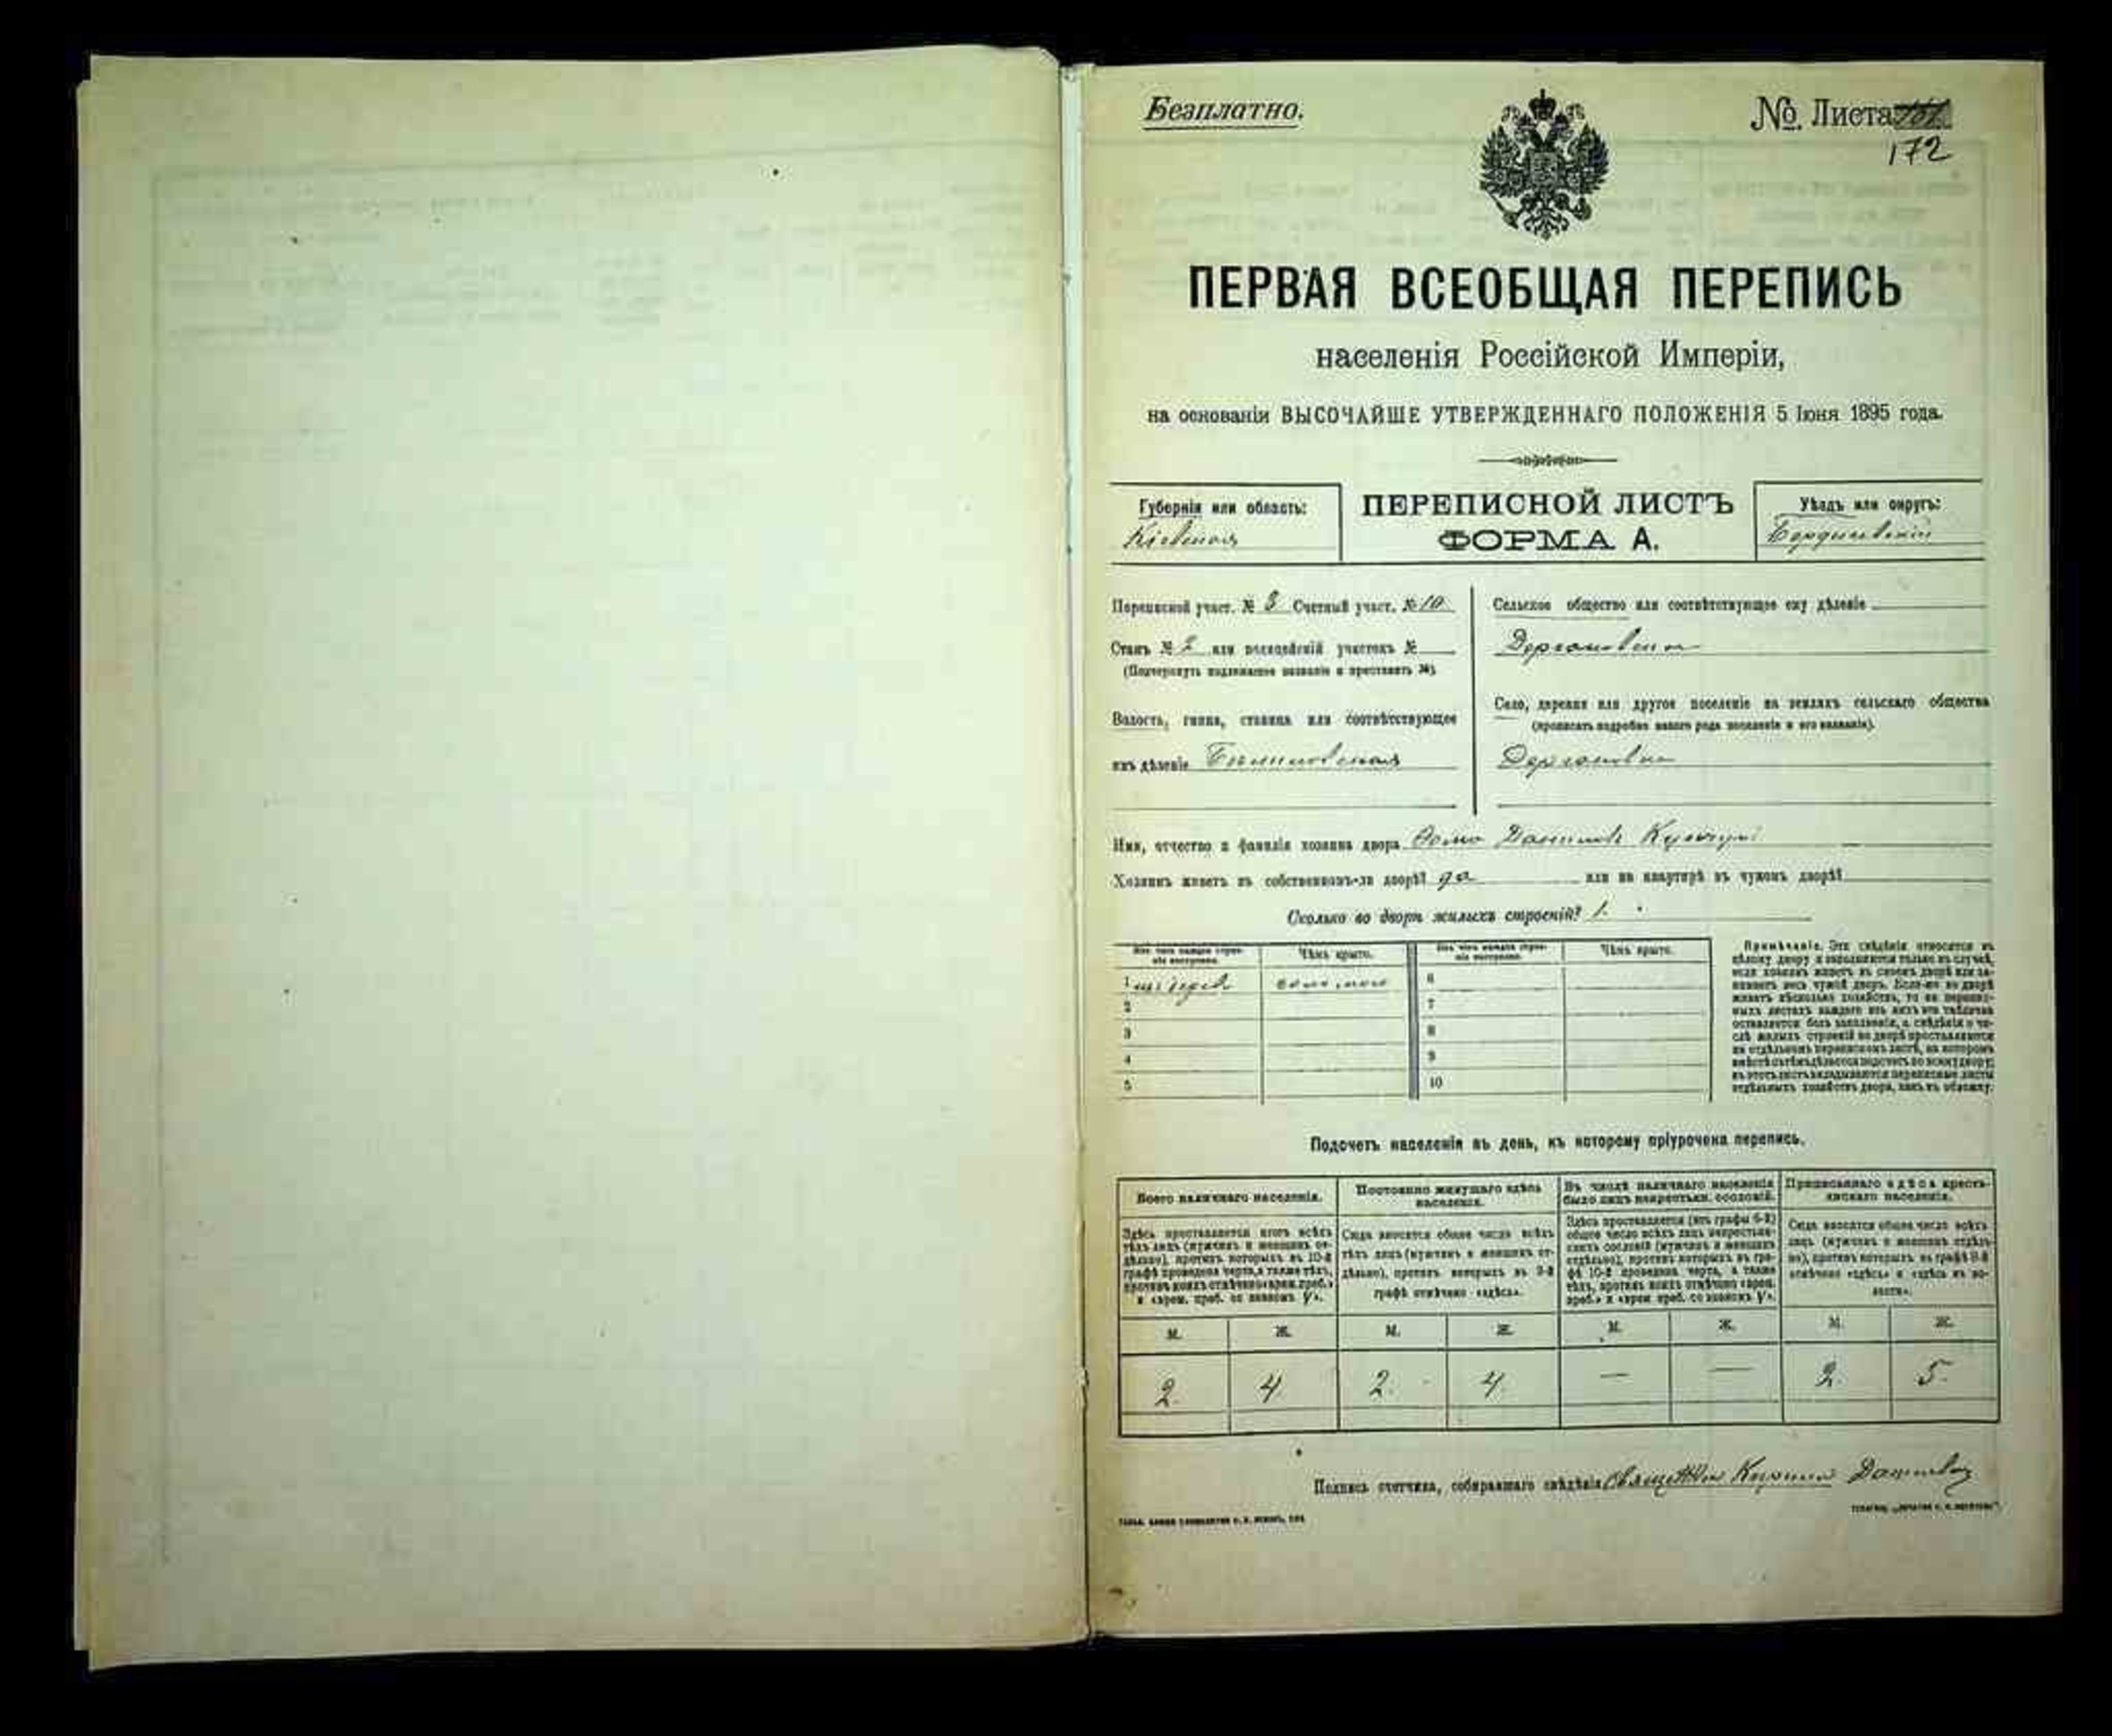 Безплатно.
№ Листа
172
ПЕРВАЯ ВСЕОБЩАЯ ПЕРЕПИСЬ
населенія Россійской Имперіи,
на основаніи ВЫСОЧАЙШЕ УТВЕРЖДЕННАГО ПОЛОЖЕНІЯ 5 Іюня 1895 года.
Губернія или область:
Кіевская
ПЕРЕПИСНОЙ ЛИСТЪ
ФОРМА А.
Уѣздъ или округъ:
Бердичевскій
Переписной участ. № 3 Счетный участ. № 10
Станъ № 2 или полицейскій участокъ №
(Подчеркнуть надлежащее названіе и проставить №).
Волость, гмина, станица или соотвѣтствующее
имъ дѣленіе
Сельское общество или соотвѣтствующее ему дѣленіе
Село, деревня или другое поселеніе на земляхъ сельскаго общества
(прописать подробно какого рода поселеніе и его названіе).
Имя, отчество и фамилія хозяина двора
Хозяинъ живетъ въ собственномъ-ли дворѣ? да или на квартирѣ въ чужомъ дворѣ?
Сколько во дворѣ жилыхъ строеній? 1.
Изъ чего каждое строеніе построено.
Чѣмъ крыто.
Изъ чего каждое строеніе построено.
Чѣмъ крыто.
1 6
2 7
3 8
4 9
5 10
Примѣчаніе. Эти свѣдѣнія относятся къ
цѣлому двору и заполняются только въ случаѣ,
если хозяинъ живетъ въ своемъ дворѣ или за-
нимаетъ весь чужой дворъ. Если-же во дворѣ
живетъ нѣсколько хозяйствъ, то на перепис-
ныхъ листахъ каждаго изъ нихъ эта табличка
оставляется безъ заполненія, а свѣдѣнія о чи-
слѣ жилыхъ строеній во дворѣ проставляются
на отдѣльномъ переписномъ листѣ, на которомъ
вмѣстѣ съ тѣмъ дѣлается подсчетъ по всему двору;
въ этотъ листъ вкладываются переписные листы
отдѣльныхъ хозяйствъ двора, какъ въ обложку.
Подсчетъ населенія въ день, къ которому пріурочена перепись.
Всего наличнаго населенія.
Постоянно живущаго здѣсь населенія.
Въ числѣ наличнаго населенія было лицъ некрестьян. сословій.
Приписаннаго здѣсь крестьянскаго населенія.
Здѣсь проставляется итогъ всѣхъ
тѣхъ лицъ (мужчинъ и женщинъ от-
дѣльно), противъ которыхъ въ 10-й
графѣ проведена черта, а также тѣхъ,
противъ коихъ отмѣчено «врем. преб.»
и «врем. преб. со знакомъ V».
Сюда вносится общее число всѣхъ
тѣхъ лицъ (мужчинъ и женщинъ от-
дѣльно), противъ которыхъ въ 9-й
графѣ отмѣчено «здѣсь».
Здѣсь проставляется (изъ графы 6-й)
общее число всѣхъ лицъ некрестьян-
скихъ сословій (мужчинъ и женщинъ
отдѣльно), противъ которыхъ въ гра-
фѣ 10-й проведена черта, а также
тѣхъ, противъ коихъ отмѣчено «врем.
преб.» и «врем. преб. со знакомъ V».
Сюда вносится общее число всѣхъ
лицъ (мужчинъ и женщинъ отдѣль-
но), противъ которыхъ въ графѣ 8-й
отмѣчено «здѣсь» и «здѣсь въ во-
лости».
М. Ж. М. Ж. М. Ж. М. Ж.
2. 4 2. 4. — — 2. 5.
Подпись счетчика, собиравшаго свѣдѣнія